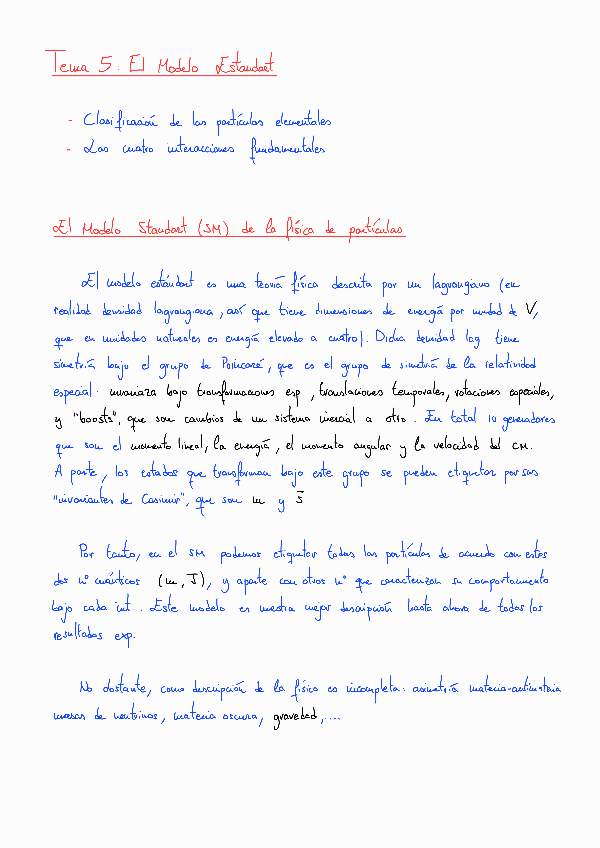 Tema 5: El Modelo Estandart
- Clasificación de las partículas elementales
- Las cuatro interacciones fundamentales
El Modelo Standart (SM) de la física de partículas
El modelo estándart es una teoría física descrita por un lagrangiano (en
realidad densidad lagrangiana, así que tiene dimensiones de energía por unidad de V,
que en unidades naturales es energía elevado a cuatro). Dicha densidad lag tiene
simetría bajo el grupo de Poincaré, que es el grupo de simetría de la relatividad
especial: invarianza bajo transformaciones esp, translaciones temporales, rotaciones espaciales,
y "boosts", que son cambios de un sistema inercial a otro. En total 10 generadores
que son el momento lineal, la energía, el momento angular y la velocidad del CM.
A parte, los estados que transforman bajo este grupo se pueden etiquetar por sus
"invariantes de Casimir", que son m y J
Por tanto, en el SM podemos etiquetar todas las partículas de acuerdo con estos
dos nº cuánticos (m, J), y aparte con otros nº que caracterizan su comportamiento
bajo cada int. Este modelo es nuestra mejor descripción hasta ahora de todos los
resultados exp.
No obstante, como descripción de la física es incompleta: asimetría materia-antimateria
masas de neutrinos, materia oscura, gravedad,....